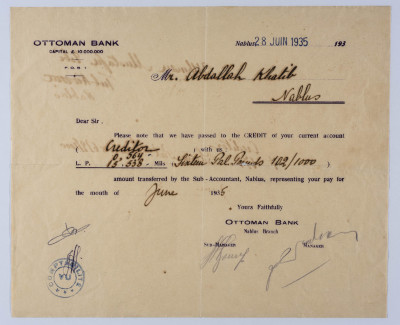 OTTOMAN BANK
CAPITAL £ 10.000.000
Nablus, 28 JUIN 1935 193
Mr. Abdallah Khatib
Nablus
Dear Sir.
Please note that we have passed to the CREDIT of your current account
( Creditor ) with us
L. P. Mils. (Sixteen Pal. Pounds /1000 )
amount transferred by the Sub-Accountant, Nablus, representing your pay for
the month of June 1935
Yours Faithfully
OTTOMAN BANK
Nablus Branch
SUB-MANAGER MANAGER